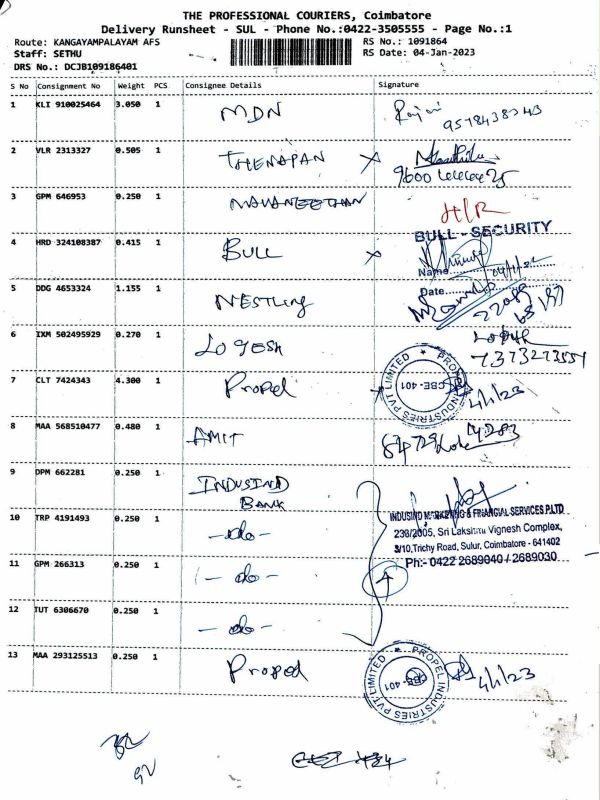 THE PROFESSIONAL COURIERS, Coimbatore
Delivery Runsheet - SUL - Phone No.:0422-3505555 - Page No.:1
Route: KANGAYAMPALAYAM AFS RS No.: 1091864
Staff: SETHU RS Date: 04-Jan-2023
DRS No.: DCJB109186401
S No Consignment No Weight PCS Consignee Details Signature
1 KLI 910025464 3.050 1 MDN
2 VLR 2313327 0.505 1 THENAPAN
3 GPM 646953 0.250 1 NAVANEETHAN H/R
BULL - SECURITY
4 HRD 324108387 0.415 1 BULL
Name
Date
5 DDG 4653324 1.155 1 NESTLING
6 IXM 502495929 0.270 1 LOGESH
7 CLT 7424343 4.300 1 Propel PROPEL INDUSTRIES PVT LIMITED CBE - 401 4/1/23
8 MAA 568510477 0.480 1 AMIT
9 DPM 662281 0.250 1 INDUSIND
BANK
INDUSIND MARKETING & FINANCIAL SERVICES P.LTD
10 TRP 4191493 0.250 1 - do -
238/2005, Sri Lakshmi Vignesh Complex,
3/10,Trichy Road, Sulur, Coimbatore - 641402
Ph:- 0422 2689040 / 2689030
11 GPM 266313 0.250 1 - do -
12 TUT 6306670 0.250 1 - do -
13 MAA 293125513 0.250 1 Propel PROPEL INDUSTRIES PVT LIMITED CBE - 401 4/1/23